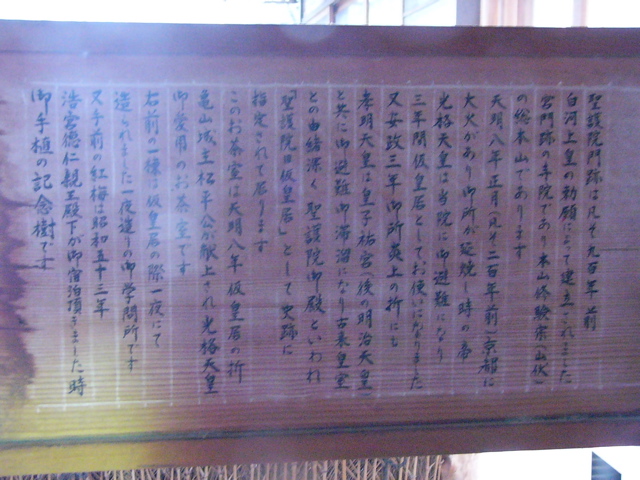 聖護院門跡は凡そ九百年前
白河上皇の勅願によって建立されました
宮門跡の寺院であり本山修験宗(山伏)
の総本山であります
天明八年正月(凡そ二百年前)京都に
大火があり御所が延焼し時の帝
光格天皇は当院に御避難になり
三年間仮皇居としてお使いになりました
又安政三年御所炎上の折にも
孝明天皇は皇子祐宮(後の明治天皇)
と共に御避難御滞溜になり古来皇室
との由緒深く聖護院御殿といわれ
「聖護院旧仮皇居」として史跡に
指定されて居ります
このお茶室は天明八年仮皇居の折
亀山城主松平公が献上され光格天皇
御愛用のお茶室です
右前の一棟は仮皇居の際一夜にて
造られました一夜造りの御学問所です
又手前の紅梅は昭和五十三年
浩宮徳仁親王殿下が御宿泊頂きました時
御手植の記念樹です